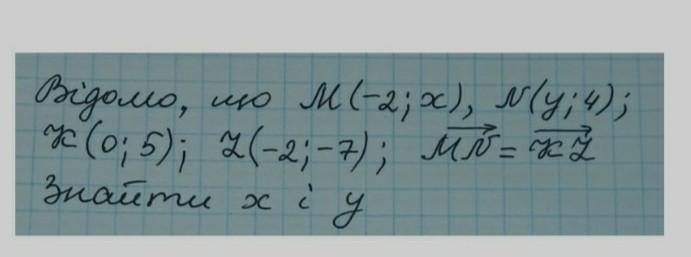 Відомо, що M(-2; x), N(y; 4);
K(0; 5); Z(-2; -7); MN = KZ
Знайти x і y